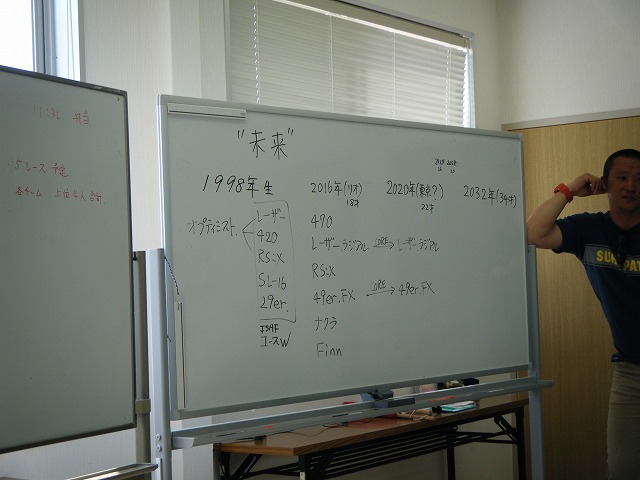 弁当
5レース 予定
各チーム 上位4人 合計.
"未来"
1998年生
オプティミスト.
レーザー
420
RS:X
SL-16
29er.
JSAF
ユースW
2016年(リオ)
18才
470
レーザーラジアル CORE→ レーザーラジアル
RS:X
49er.FX CORE→ 49er.FX
ナクラ
Finn
2020年(東京?)
22才
2024 2028
2032年(34才)